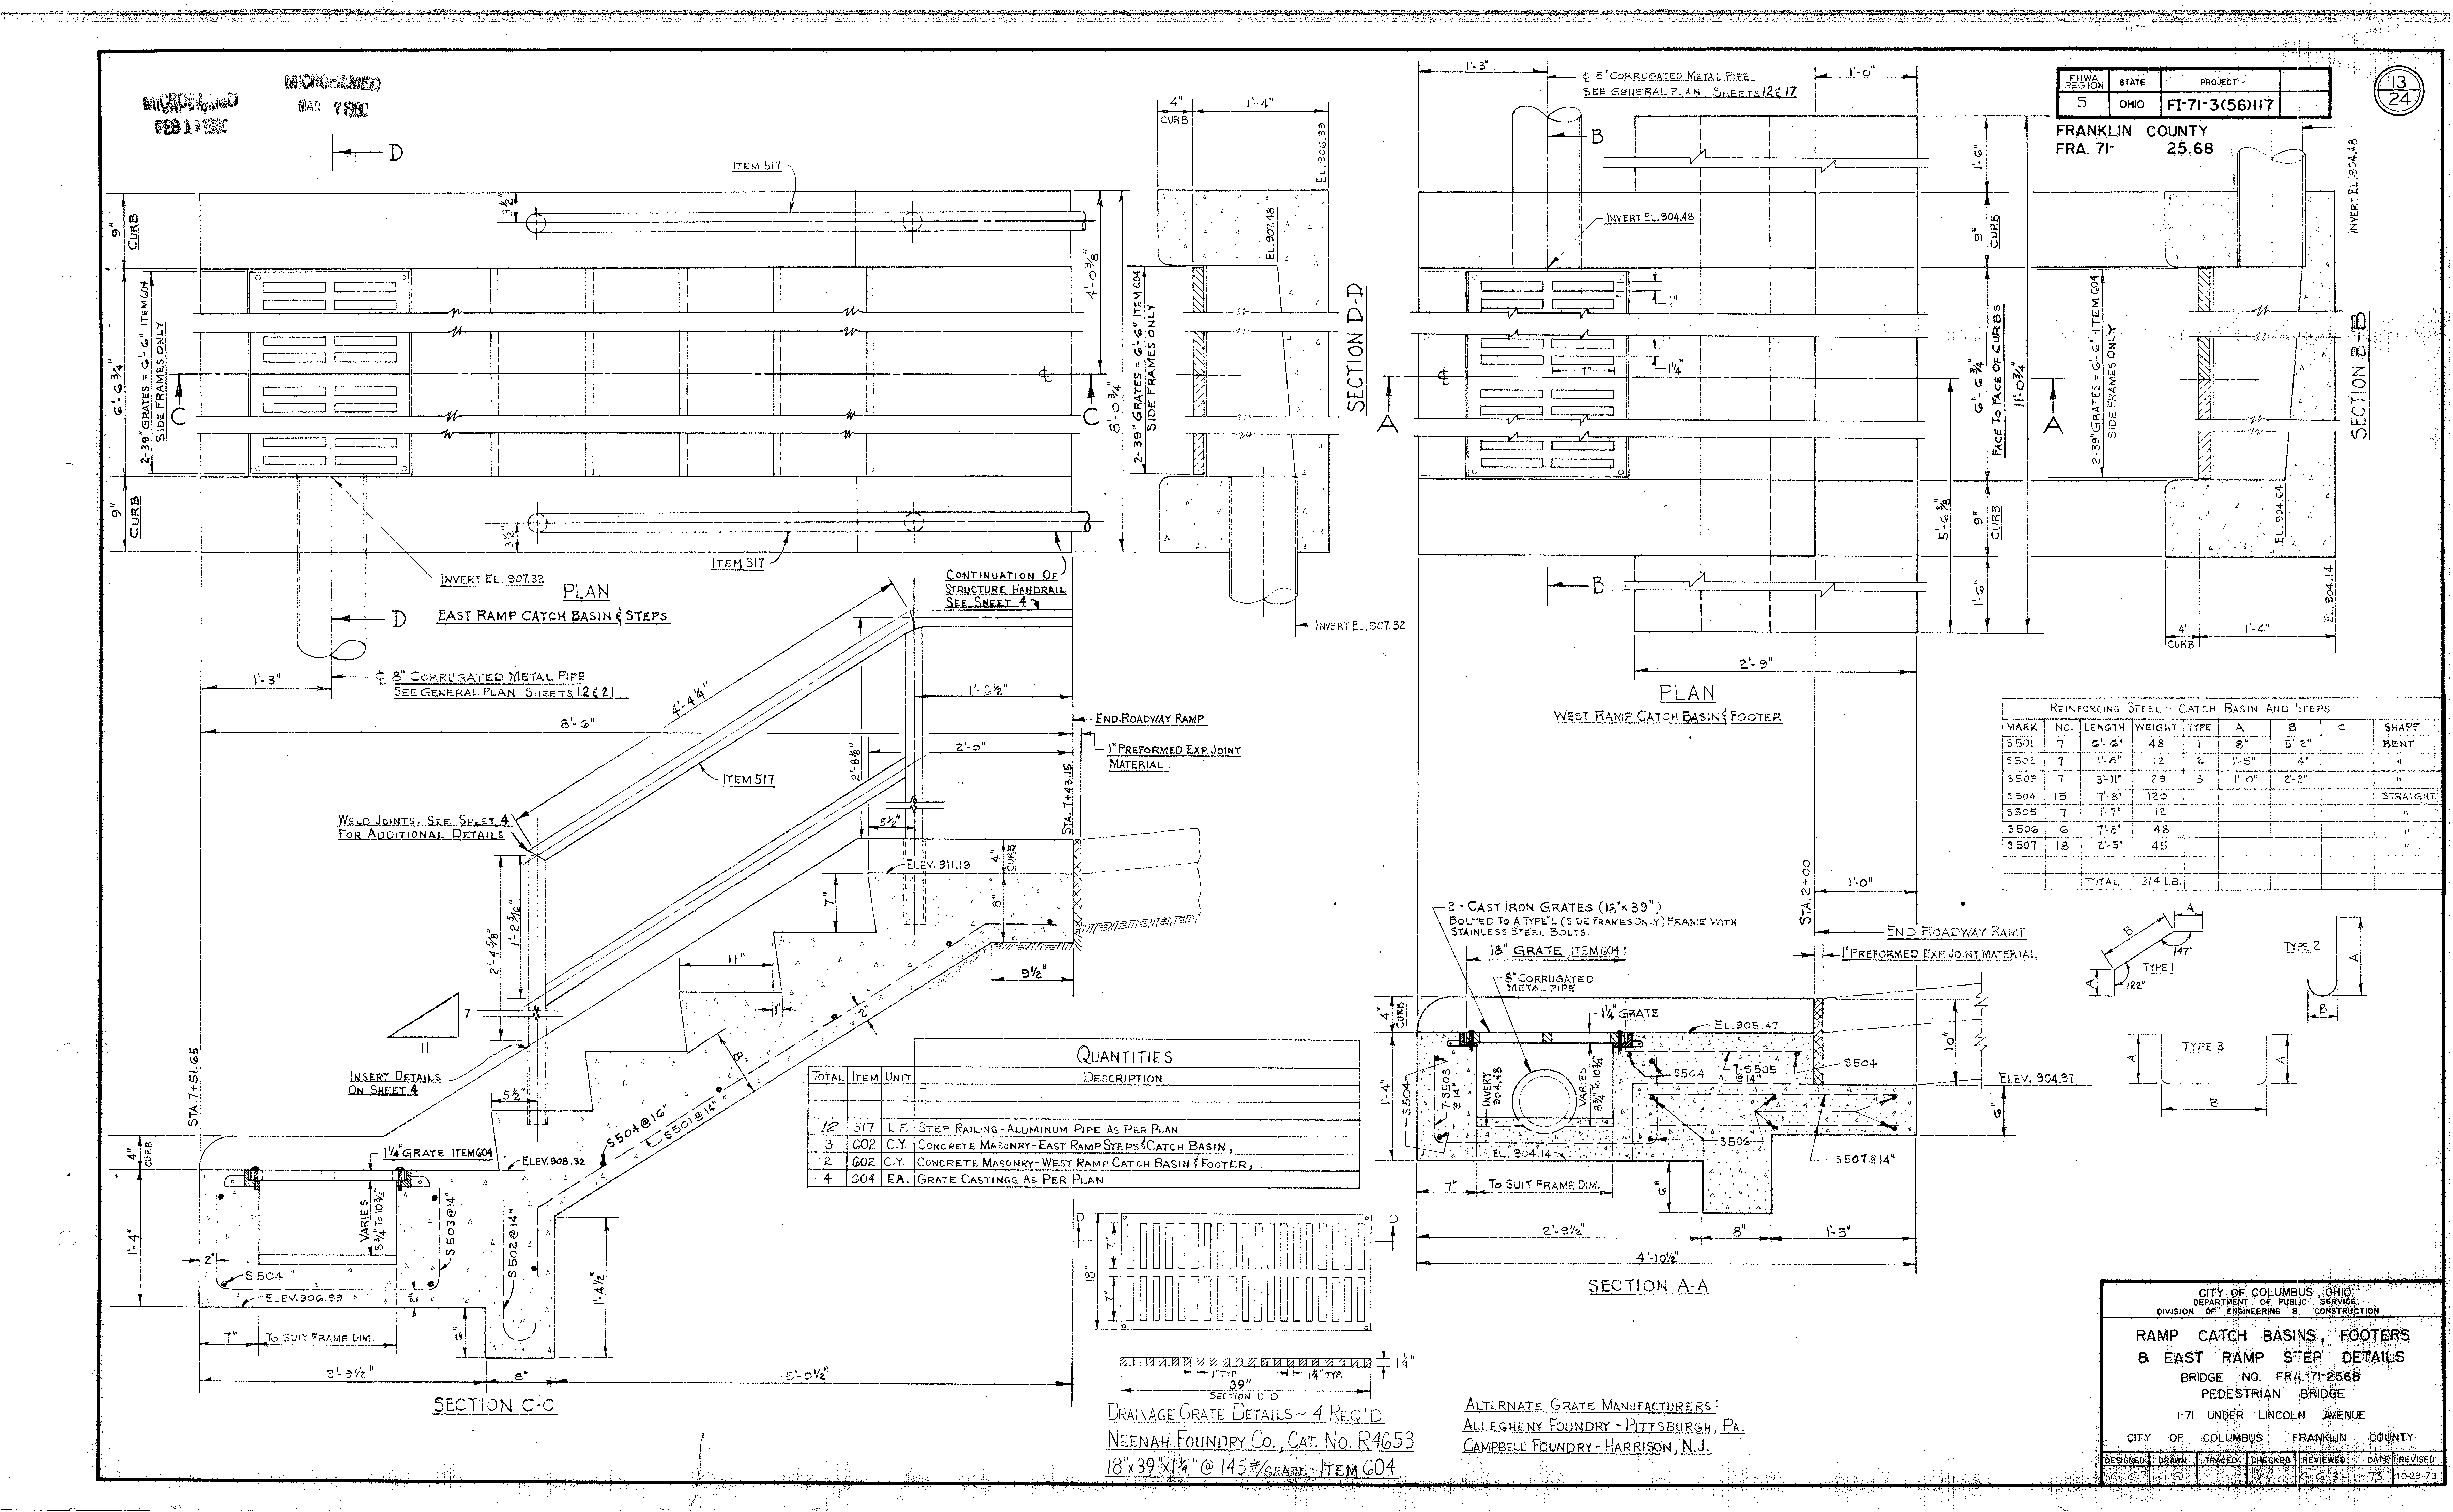 MICROFILMED
FEB 1 1980
MICROFILMED
MAR 7 1980
D
ITEM 517
3½"
9"
CURB
6'-6¾"
2-39" GRATES = 6'-6" ITEM 604
SIDE FRAMES ONLY
C
9"
CURB
3½"
ITEM 517
4'-0⅜"
8'-0¾"
℄
C
INVERT EL. 907.32
PLAN
EAST RAMP CATCH BASIN & STEPS
D
1'-3"
℄ 8" CORRUGATED METAL PIPE
SEE GENERAL PLAN SHEETS 12 & 21
8'-6"
CONTINUATION OF
STRUCTURE HANDRAIL
SEE SHEET 4
4"
CURB
1'-4"
EL. 906.99
EL. 907.48
2-39" GRATES = 6'-6" ITEM 604
SIDE FRAMES ONLY
SECTION D-D
INVERT EL. 907.32
1'-3"
℄ 8" CORRUGATED METAL PIPE
SEE GENERAL PLAN SHEETS 12 & 17
1'-0"
B
INVERT EL. 904.48
1"
1¼"
7"
℄
A
A
1'-6"
9"
CURB
6'-6¾"
FACE TO FACE OF CURBS
11'-0¾"
5'-6⅜"
9"
CURB
1'-6"
B
2'-9"
PLAN
WEST RAMP CATCH BASIN & FOOTER
FHWA
REGION
STATE
PROJECT
5
OHIO
FI-71-3(56)117
13
24
FRANKLIN COUNTY
FRA. 71- 25.68
INVERT EL. 904.48
2-39" GRATES = 6'-6" ITEM 604
SIDE FRAMES ONLY
SECTION B-B
EL. 904.64
EL. 904.14
4"
CURB
1'-4"
4'-4¼"
1'-6½"
END ROADWAY RAMP
2'-0"
1" PREFORMED EXP. JOINT
MATERIAL
2'-8⅛"
ITEM 517
STA. 7+43.15
WELD JOINTS. SEE SHEET 4
FOR ADDITIONAL DETAILS
5½"
ELEV. 911.19
4"
CURB
7"
8"
2'-4⅝"
1'-2 5/16"
11"
9½"
1"
2"
7
11
8"
INSERT DETAILS
ON SHEET 4
5½"
STA. 7+51.65
S504@16"
S501@14"
4"
CURB
1¼" GRATE ITEM 604
ELEV. 908.32
VARIES
8¾" TO 10¾"
S503@14"
S502@14"
1'-4"
2"
S504
ELEV. 906.99
2"
6"
1'-4½"
7"
TO SUIT FRAME DIM.
2'-9½"
8"
5'-0½"
SECTION C-C
QUANTITIES
TOTAL ITEM UNIT DESCRIPTION
12 517 L.F. STEP RAILING-ALUMINUM PIPE AS PER PLAN
3 602 C.Y. CONCRETE MASONRY-EAST RAMP STEPS & CATCH BASIN,
2 602 C.Y. CONCRETE MASONRY-WEST RAMP CATCH BASIN & FOOTER,
4 604 EA. GRATE CASTINGS AS PER PLAN
D
D
7"
18"
7"
1¼"
1" TYP.
1¼" TYP.
39"
SECTION D-D
DRAINAGE GRATE DETAILS ~ 4 REQ'D
NEENAH FOUNDRY CO., CAT. NO. R4653
18"x39"x1¼" @ 145#/GRATE, ITEM 604
ALTERNATE GRATE MANUFACTURERS:
ALLEGHENY FOUNDRY - PITTSBURGH, PA.
CAMPBELL FOUNDRY - HARRISON, N.J.
2 - CAST IRON GRATES (18"x 39")
BOLTED TO A TYPE "L" (SIDE FRAMES ONLY) FRAME WITH
STAINLESS STEEL BOLTS.
18" GRATE, ITEM 604
8" CORRUGATED
METAL PIPE
STA. 2+00
1'-0"
END ROADWAY RAMP
1" PREFORMED EXP. JOINT MATERIAL
4"
CURB
1¼ GRATE
EL. 905.47
1'-4"
S504
7-S503
@ 14"
INVERT
904.48
VARIES
8¾" TO 10¾"
S504
7-S505
@14"
S504
10"
ELEV. 904.97
6"
S506
EL. 904.14
S507@14"
7"
TO SUIT FRAME DIM.
6"
2'-9½"
8"
1'-5"
4'-10½"
SECTION A-A
REINFORCING STEEL - CATCH BASIN AND STEPS
MARK NO. LENGTH WEIGHT TYPE A B C SHAPE
S501 7 6'-6" 48 1 8" 5'-2" BENT
S502 7 1'-8" 12 2 1'-5" 4" "
S503 7 3'-11" 29 3 1'-0" 2'-2" "
S504 15 7'-8" 120 STRAIGHT
S505 7 1'-7" 12 "
S506 6 7'-8" 48 "
S507 18 2'-5" 45 "
TOTAL 314 LB.
A
B
147°
TYPE 1
A
122°
TYPE 2
A
B
TYPE 3
A
A
B
CITY OF COLUMBUS, OHIO
DEPARTMENT OF PUBLIC SERVICE
DIVISION OF ENGINEERING & CONSTRUCTION
RAMP CATCH BASINS, FOOTERS
& EAST RAMP STEP DETAILS
BRIDGE NO. FRA.-71-2568
PEDESTRIAN BRIDGE
I-71 UNDER LINCOLN AVENUE
CITY OF COLUMBUS FRANKLIN COUNTY
DESIGNED DRAWN TRACED CHECKED REVIEWED DATE REVISED
G.G. G.G. G.G. 3-1-73 10-29-73